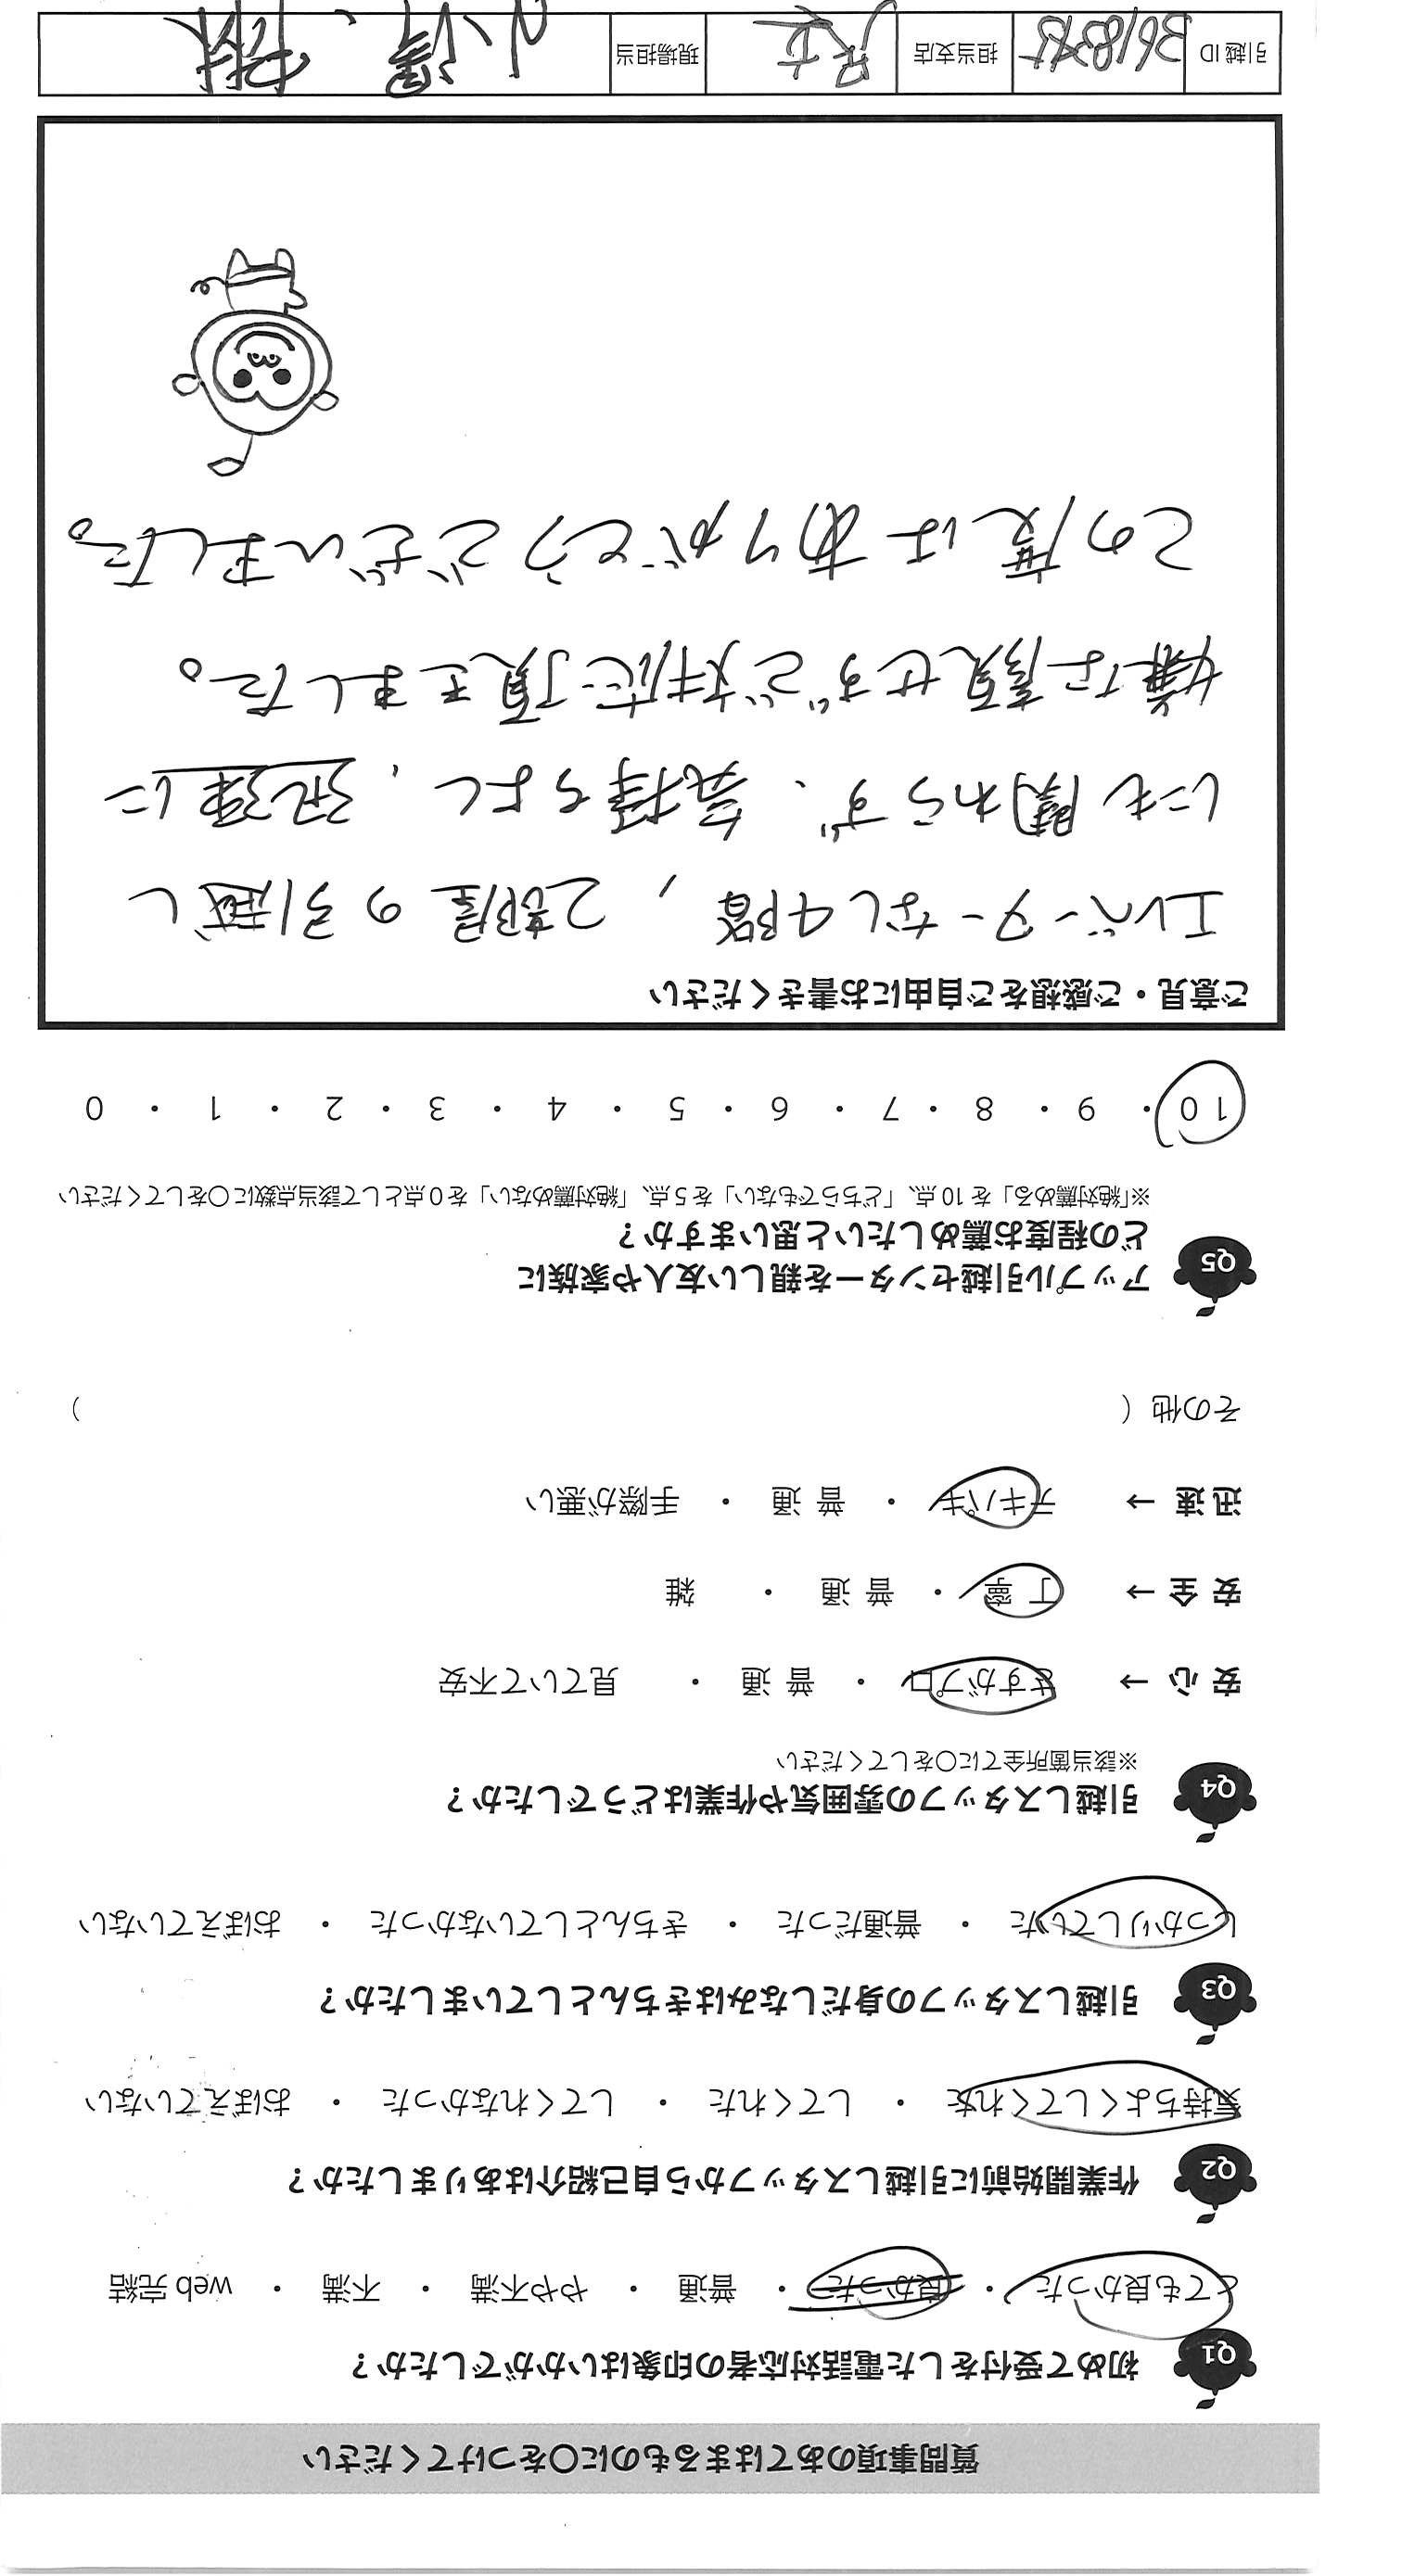 質問事項のあてはまるものに〇をつけてください
Q1 初めて受付をした電話対応者の印象はいかがでしたか？
とても良かった ・ 良かった ・ 普通 ・ やや不満 ・ 不満 ・ web 完結
Q2 作業開始前に引越しスタッフから自己紹介はありましたか？
気持ちよくしてくれた ・ してくれた ・ してくれなかった ・ おぼえていない
Q3 引越しスタッフの身だしなみはきちんとしていましたか？
しっかりしていた ・ 普通だった ・ きちんとしていなかった ・ おぼえていない
Q4 引越しスタッフの雰囲気や作業はどうでしたか？
※該当箇所全てに〇をしてください
安 心 → さすがプロ ・ 普 通 ・ 見ていて不安
安 全 → 丁 寧 ・ 普 通 ・ 雑
迅 速 → テキパキ ・ 普 通 ・ 手際が悪い
その他（ ）
Q5 アップル引越センターを親しい友人や家族に
どの程度お薦めしたいと思いますか？
※「絶対薦める」を 10 点、「どちらでもない」を 5 点、「絶対薦めない」を 0 点として該当点数に〇をしてください
10 ・ 9 ・ 8 ・ 7 ・ 6 ・ 5 ・ 4 ・ 3 ・ 2 ・ 1 ・ 0
ご意見・ご感想をご自由にお書きください
エレベーターなし4階，2部屋の引越し
にも関わらず、気持ちよく，迅速に
嫌な顔せずご対応頂きました。
この度はありがとうございました。
引越 ID 担当支店 現場担当 小澤、